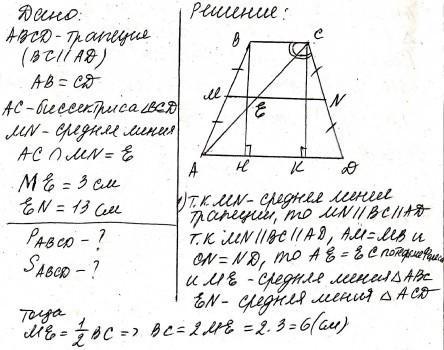 Дано:
ABCD - трапеция
(BC || AD)
AB = CD
AC - биссектриса ∠BCD
MN - средняя линия
AC ∩ MN = E
ME = 3 см
EN = 13 см
P ABCD - ?
S ABCD - ?
Решение:
B C
M E N
A H K D
1) Т.к MN - средняя линия
трапеции, то MN || BC || AD
Т.к MN || BC || AD, AM = MB и
CN = ND, то AE = EC по теореме Фалеса
и ME - средняя линия △ ABC
EN - средняя линия △ ACD
Тогда
ME = 1/2 BC => BC = 2ME = 2 . 3 = 6 (см)